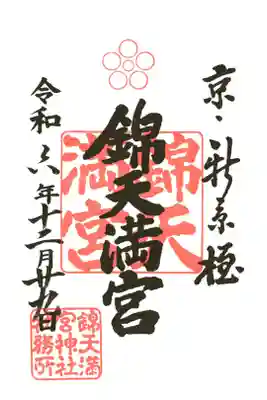 京、新京極
錦天満宮
錦天満宮
令和六年十二月廿九日
錦天満宮神社務所